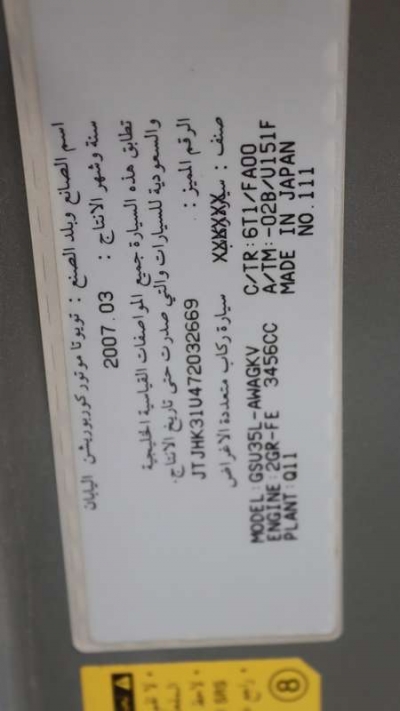 اسم الصانع وبلد الصنع : تويوتا موتور كوربوريشن اليابان
سنة وشهر الانتاج : 2007.03
تطابق هذه السيارة جميع المواصفات القياسية الخليجية
والسعودية للسيارات والتي صدرت حتى تاريخ الانتاج.
الرقم المميز : JTJHK31U472032669
صنف : XXXXXX سيارة ركاب متعددة الاغراض
MODEL:GSU35L-AWAGKV C/TR:6T1/FA00
ENGINE:2GR-FE 3456CC A/TM:-02B/U151F
PLANT:Q11 MADE IN JAPAN
NO.111
8